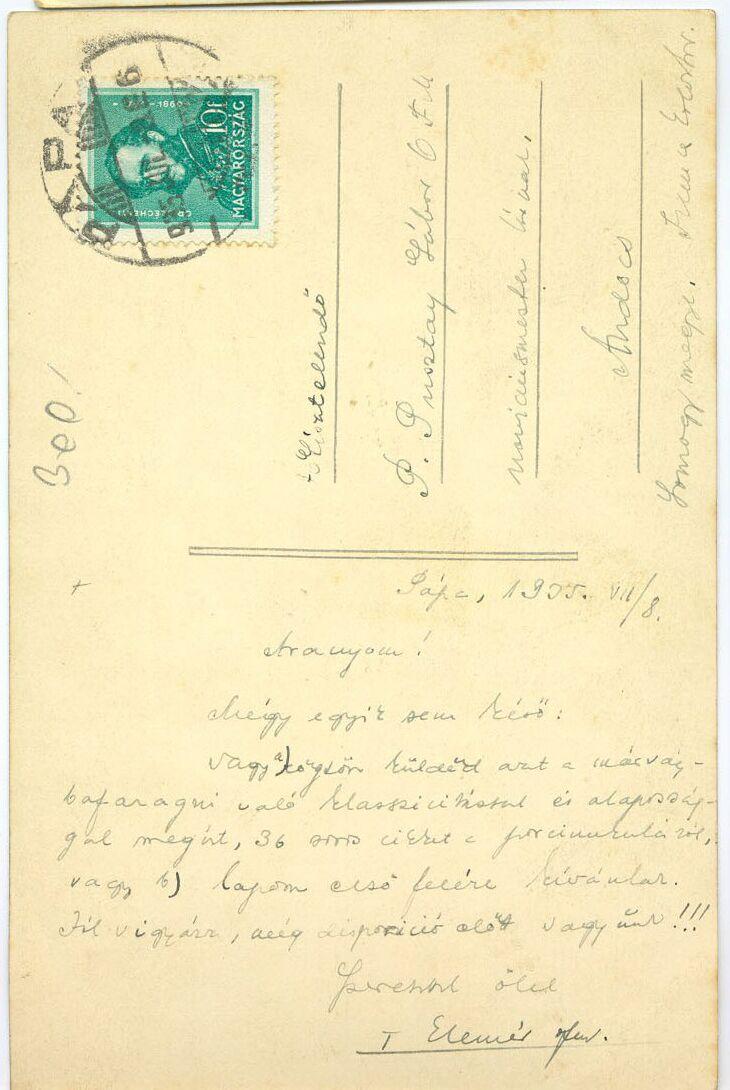 PÁPA
10f
MAGYARORSZÁG
GR. SZÉCHENYI
Főtisztelendő
P. Pusztay Gábor OFM
noviciusmester úrnak,
Andocs
Somogy megye.
360!
+
Pápa, 1935. VII/8.
Aranyom!
Mégy egyik sem késő:
vagy a) rögtön küldöd azt a márvány-
bafaragni való klasszicitással és alaposság-
gal megírt, 36 soros cikket a porciunkuláról,
vagy b) lapom első felére kívánlak.
Jól vigyázz, még diszpozició előtt vagyunk!!!
Szeretettel ölel
Elemér